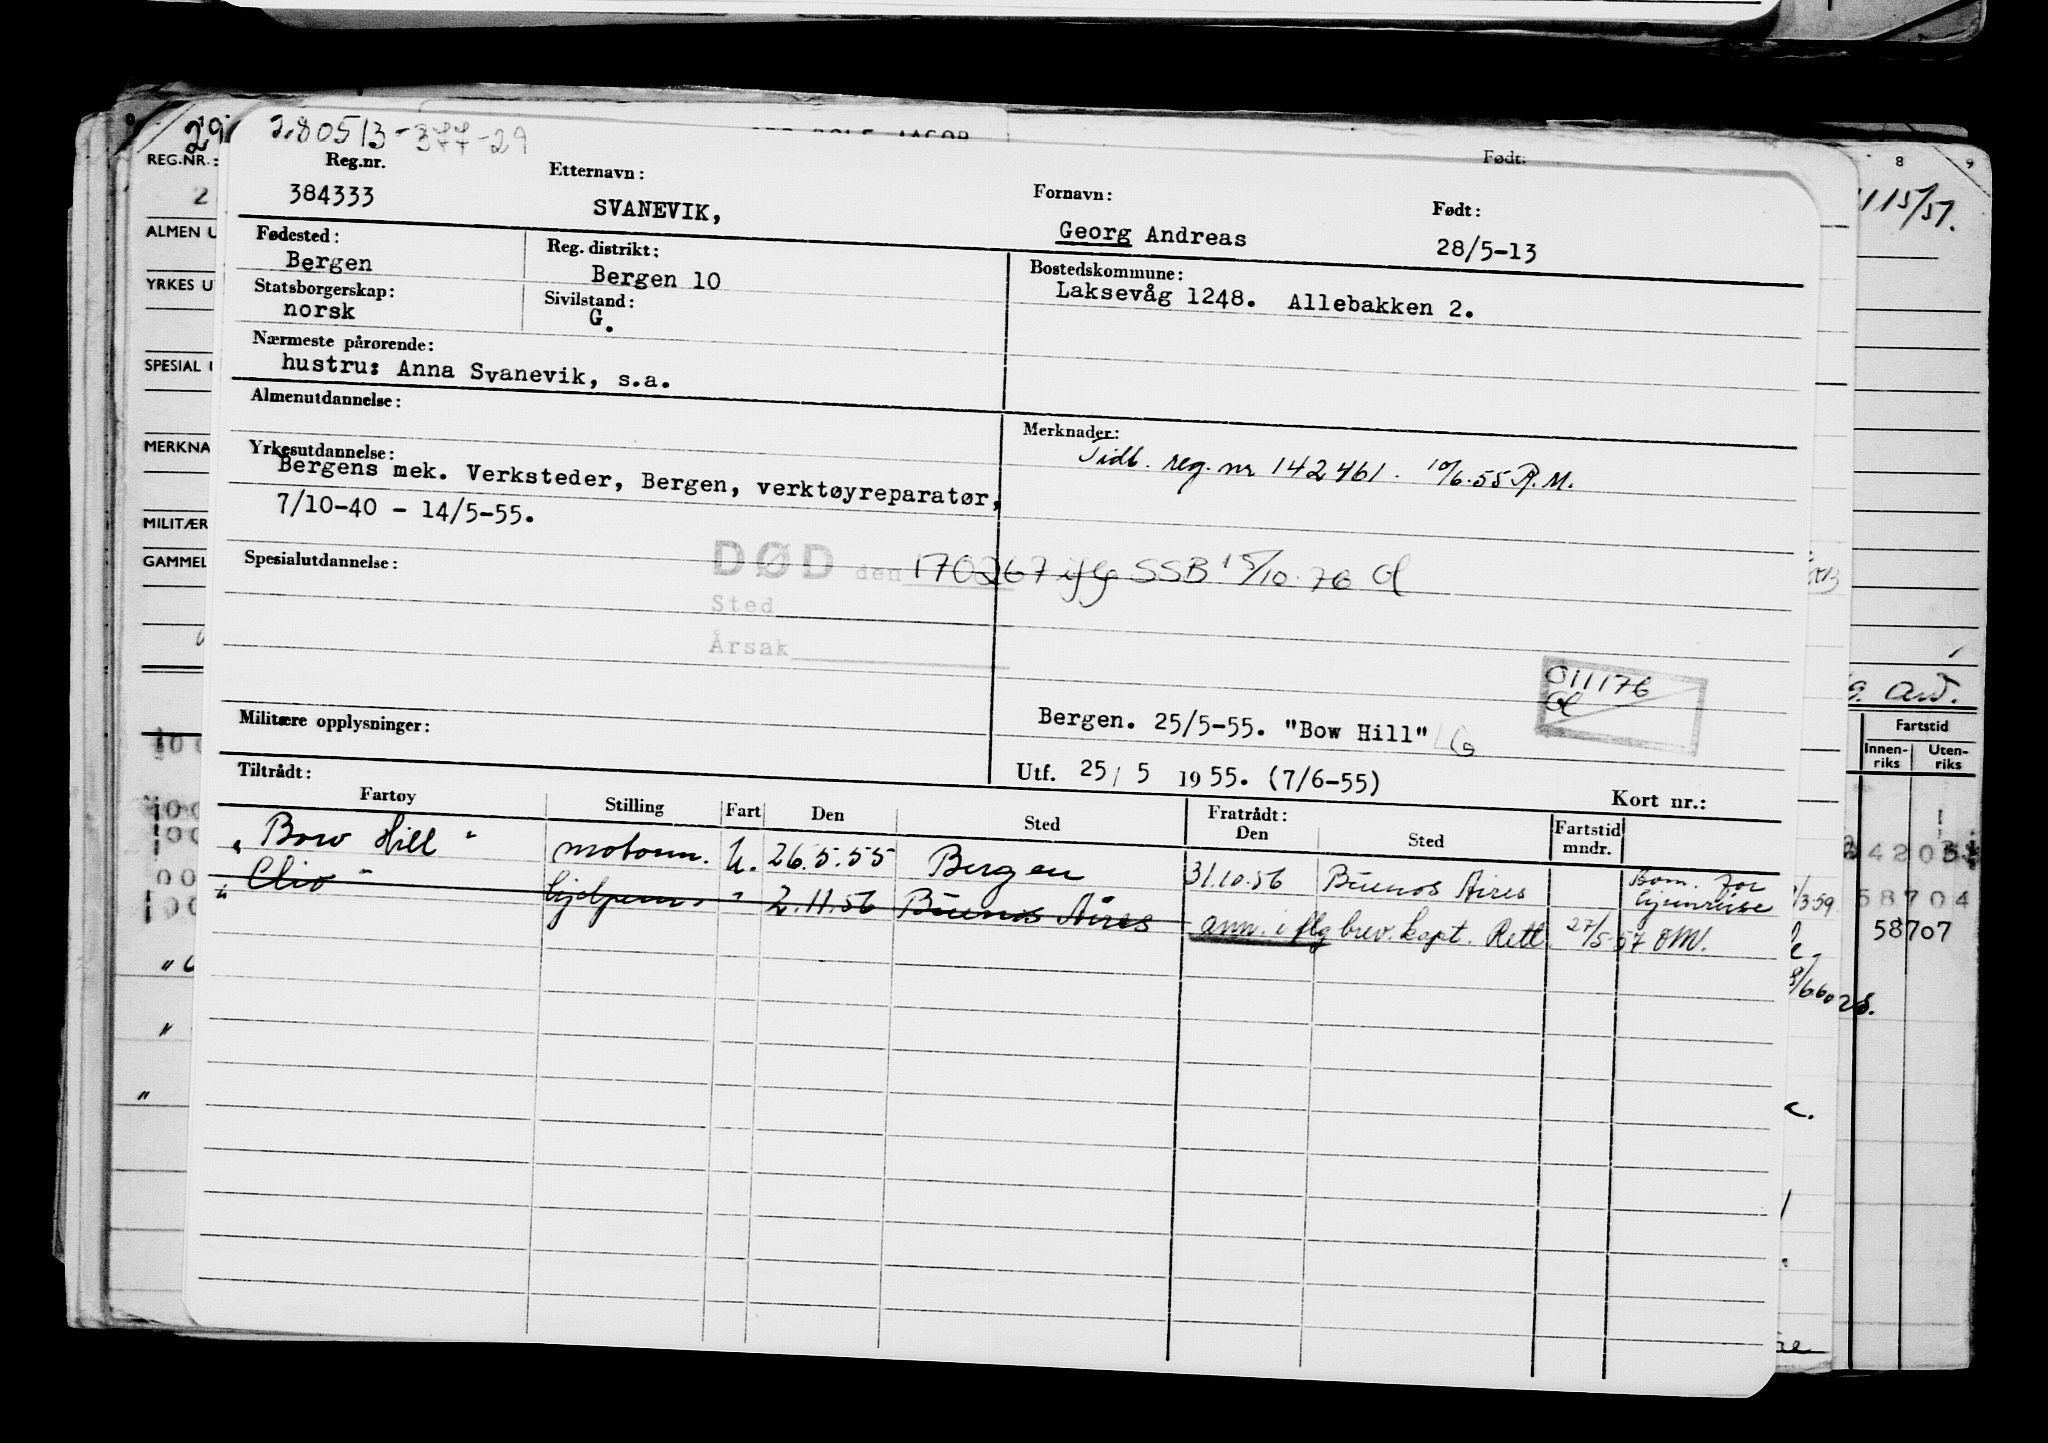 280513-377-29
Reg.nr. Etternavn: Fornavn: Født:
384333 SVANEVIK, Georg Andreas 28/5-13
Fødested: Reg. distrikt: Bostedskommune:
Bergen Bergen 10 Laksevåg 1248. Allebakken 2.
Statsborgerskap: Sivilstand:
norsk G.
Nærmeste pårørende:
hustru: Anna Svanevik, s.a.
Almenutdannelse: Merknader:
Tidl. reg. nr 142461. 10/6.55 R.M.
Yrkesutdannelse:
Bergens mek. Verksteder, Bergen, verktøyreparatør,
7/10-40 - 14/5-55.
Spesialutdannelse: DØD den 170267 iflg SSB 15/10.76 Gl
Sted
Årsak
011176
Gl
Militære opplysninger: Bergen. 25/5-55. "Bow Hill" LG
Utf. 25/5 1955. (7/6-55) Kort nr.:
Tiltrådt: Fratrådt:
Fartøy Stilling Fart Den Sted Den Sted Fartstid mndr.
"Bow Hill" motorm. U. 26.5.55 Bergen 31.10.56 Buenos Aires Bom. for hjemreise
"Clio" hjelpem. " 2.11.56 Buenos Aires ann. iflg brev. kapt. Rett. 27/5-57 OM.
REG.NR.:
ALMEN U
YRKES U
SPESIAL U
MERKNA
MILITÆR
GAMMEL
Født:
8 9
115/51.
Fartstid
Innen-riks Uten-riks
58704
58707